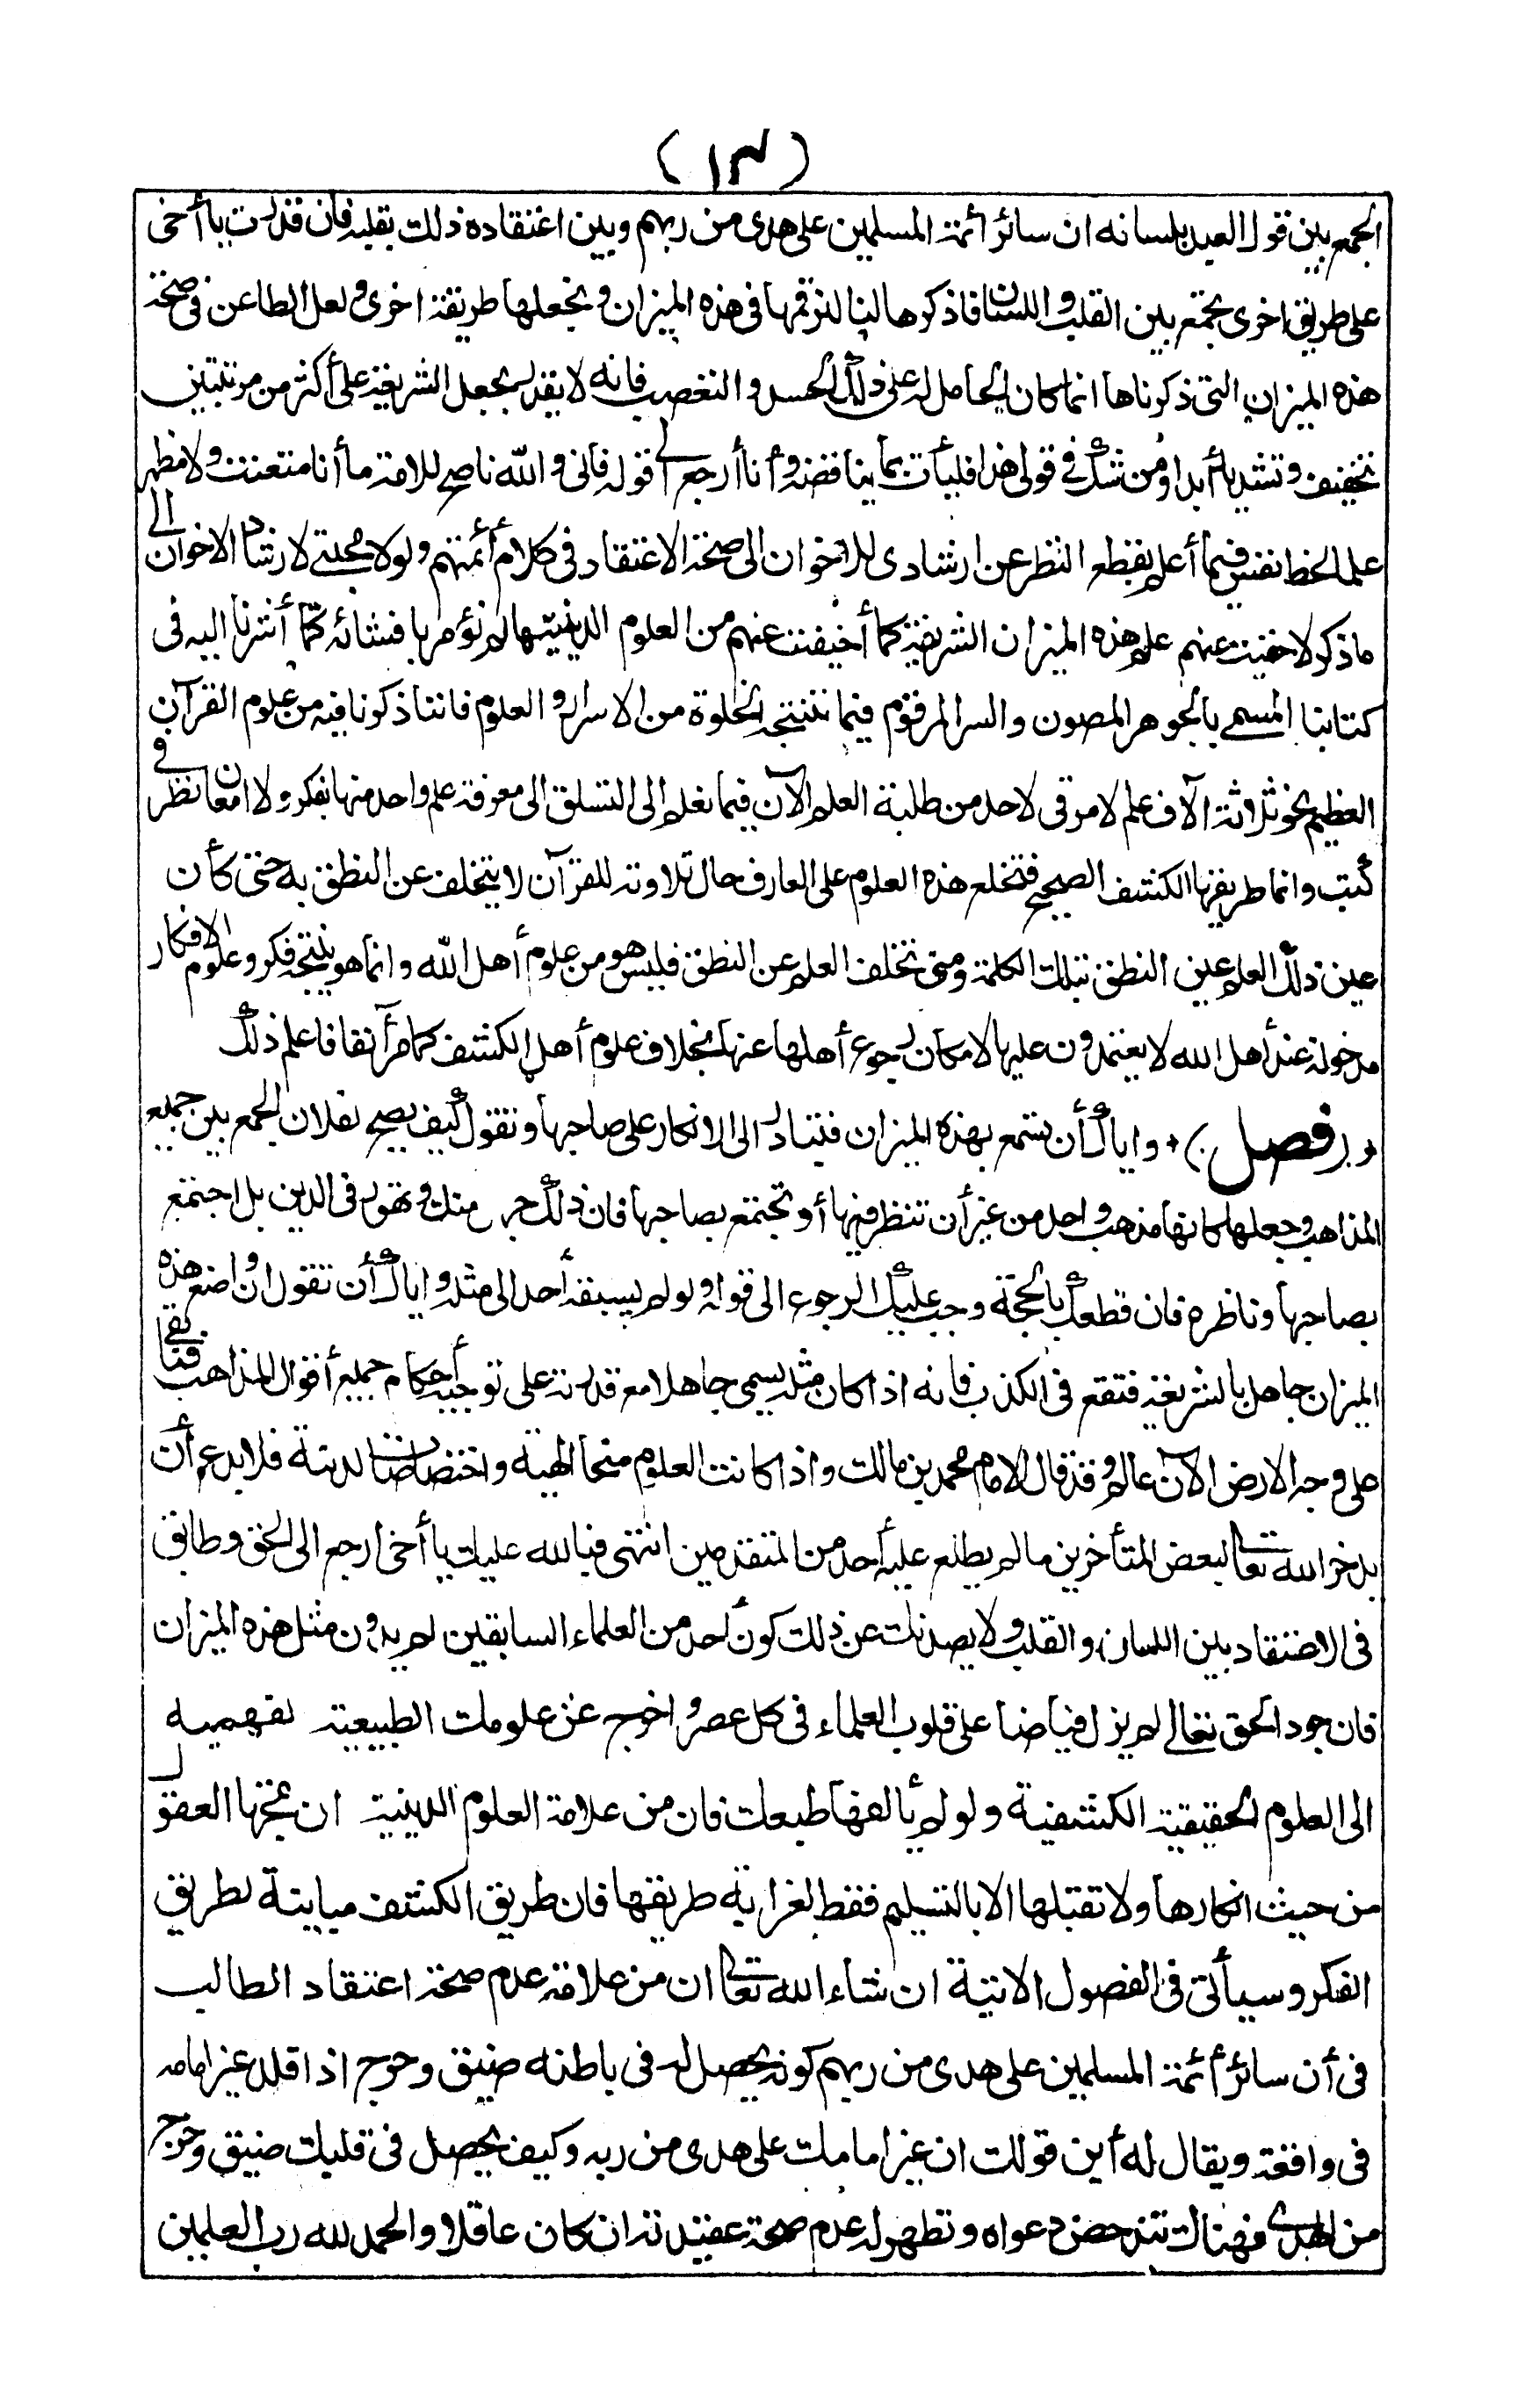 (١٣)
الجمع بين قول العبد بلسانه ان سائر أئمة المسلمين على هدى من ربهم وبين اعتقاده ذلك بقلبه فان قدرت يا أخى
على طريق اخرى تجمع بين القلب واللسان فاذكرها لنا لنرقمها فى هذه الميزان ونجعلها طريقة اخرى ولعل الطاعن فى صحة
هذه الميزان التى ذكرناها انما كان الحامل له على ذلك الحسد والتعصب فانه لا يقدر يجعل الشريعة على أكثر من مرتبتين
تخفيف وتشديد أبدا ومن شك فى قولى هذا فليأت بما يناقضه وأنا أرجع الى قوله فانى والله ناصح للامة ما أنا متعنت ولا مظهر
علما لحظ نفس فيما أعلم بقطع النظر عن ارشادى للاخوان الى صحة الاعتقاد فى كلام أئمتهم ولولا محبتى لارشاد الاخوان الى
ما ذكر لاخفيت عنهم علم هذه الميزان الشريفة كما أخفيت عنهم من العلوم اللدنية ما لم نؤمر بافشائه كما أشرنا اليه فى
كتابنا المسمى بالجوهر المصون والسر المرقوم فيما تنتجه الخلوة من الاسرار والعلوم فاننا ذكرنا فيه من علوم القرآن
العظيم نحو ثلاثة آلاف علم لا مرقى لاحد من طلبة العلم الآن فيما نعلم الى التسلق الى معرفة علم واحد منها بفكر ولا امعان نظر فى
كتب وانما طريقها الكشف الصحيح فتخلع هذه العلوم على العارف حال تلاوته للقرآن لا يتخلف عن النطق به حتى كأن
عين ذلك العلم عين النطق بتلك الكلمة ومتى تخلف العلم عن النطق فليس هو من علوم أهل الله وانما هو نتيجة فكر وعلوم الافكار
مدخولة عند أهل الله لا يعتمدون عليها لامكان رجوع أهلها عنها بخلاف علوم أهل الكشف كما مر آنفا فاعلم ذلك
(فصل) واياك أن تسمع بهذه الميزان فتبادر الى الانكار على صاحبها وتقول كيف يصح لفلان الجمع بين جميع
المذاهب وجعلها كانها مذهب واحد من غير أن تنظر فيها أو تجتمع بصاحبها فان ذلك جهل منك وتهور فى الدين بل اجتمع
بصاحبها وناظره فان قطعك بالحجة وجب عليك الرجوع الى قوله ولو لم يسبقه أحد الى مثله واياك أن تقول ان واضع هذه
الميزان جاهل بالشريعة فتقع فى الكذب فانه اذا كان مثله يسمى جاهلا مع قدرته على توجيه أحكام جميع أقوال المذاهب فما بقى
على وجه الارض الآن عالم وقد قال الامام محمد بن مالك واذا كانت العلوم منحا الهية واختصاصات لدنية فلا بدع أن
يدخر الله تعالى لبعض المتأخرين ما لم يطلع عليه أحد من المتقدمين انتهى فبالله عليك يا أخى ارجع الى الحق وطابق
فى الاعتقاد بين اللسان والقلب ولا يصدنك عن ذلك كون أحد من العلماء السابقين لم يدون مثل هذه الميزان
فان جود الحق تعالى لم يزل فياضا على قلوب العلماء فى كل عصر واخرج عن علومك الطبيعية لفهمية
الى العلوم الحقيقية الكشفية ولو لم يألفها طبعك فان من علامة العلوم اللدنية ان تمجها العقول
من حيث افكارها ولا تقبلها الا بالتسليم فقط لغرابة طريقها فان طريق الكشف مباينة لطريق
الفكر وسيأتى فى الفصول الاتية ان شاء الله تعالى ان من علامة عدم صحة اعتقاد الطالب
فى أن سائر أئمة المسلمين على هدى من ربهم كونه يحصل له فى باطنه ضيق وحرج اذا قلد غير امامه
فى واقعة ويقال له أين قولك ان غير امامك على هدى من ربه وكيف يحصل فى قلبك ضيق وحرج
من الهدى فهنالك تندحض دعواه وتظهر له عدم صحة عقيدته ان كان عاقلا والحمد لله رب العلمين